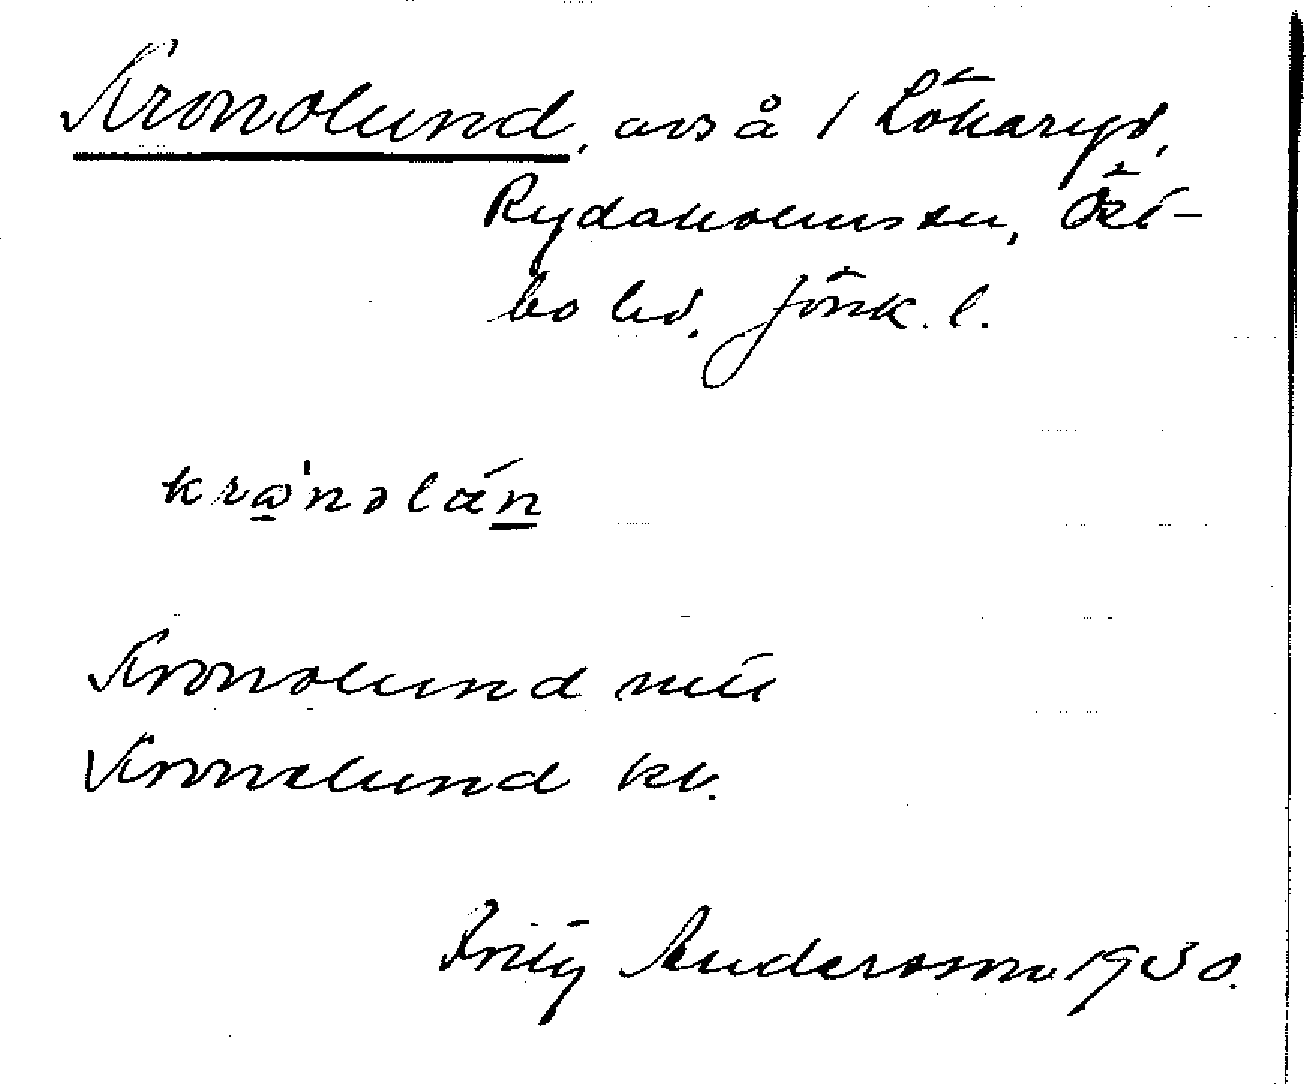 Kronolund, avs å 1 Lökaryd,
Rydaholms sn, Öst-
bo hd. Jönk. l.
krω̲'nəláṉ
Kronolund mtl
Kronolund kv.
Fritz Andersson 1930.